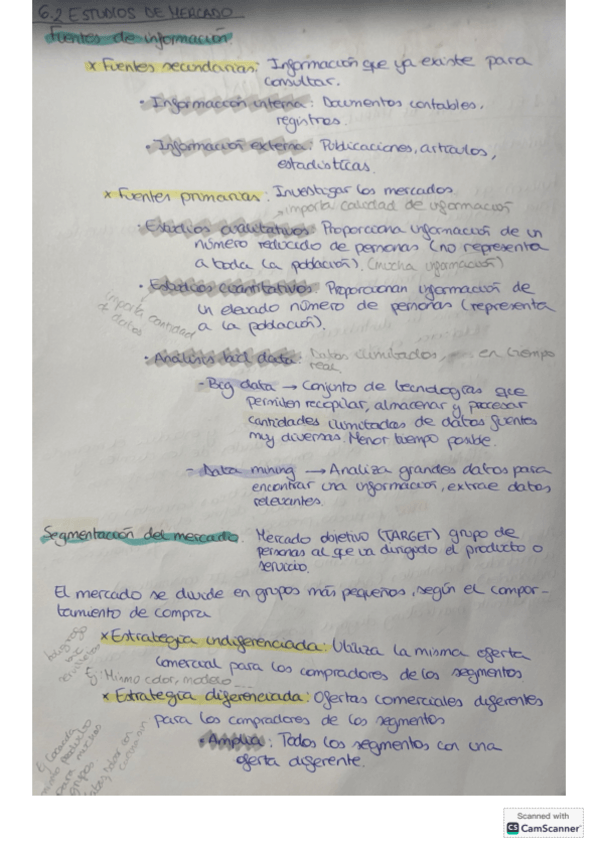 6.2 ESTUDIOS DE MERCADO
Fuentes de información.
x Fuentes secundarias: Información que ya existe para
consultar.
• Información interna: Documentos contables,
registros.
• Información externa: Publicaciones, artículos,
estadísticas.
x Fuentes primarias: Investigar los mercados
importa calidad de información
• Estudios cualitativos: Proporciona información de un
número reducido de personas (no representa
a toda la población). (mucha información)
• Estudios cuantitativos: Proporcionan información de
un elevado número de personas (representa
a la población).
importa cantidad
de datos
• Análisis big data: Datos ilimitados, en tiempo
real
- Big data → Conjunto de tecnologías que
permiten recopilar, almacenar y procesar
cantidades ilimitadas de datos fuentes
muy diversas. Menor tiempo posible.
- Data mining → Analiza grandes datos para
encontrar una información, extrae datos
relevantes.
Segmentación del mercado. Mercado objetivo (TARGET) grupo de
personas al que va dirigido el producto o
servicio.
El mercado se divide en grupos más pequeños, según el compor-
tamiento de compra
x Estrategia indiferenciada: Utiliza la misma oferta
comercial para los compradores de los segmentos
Ej: Mismo color, modelo...
x Estrategia diferenciada: Ofertas comerciales diferentes
para los compradores de los segmentos
• Amplia: Todos los segmentos con una
oferta diferente.
mismo producto
para muchos
grupos
Scanned with
CS CamScanner